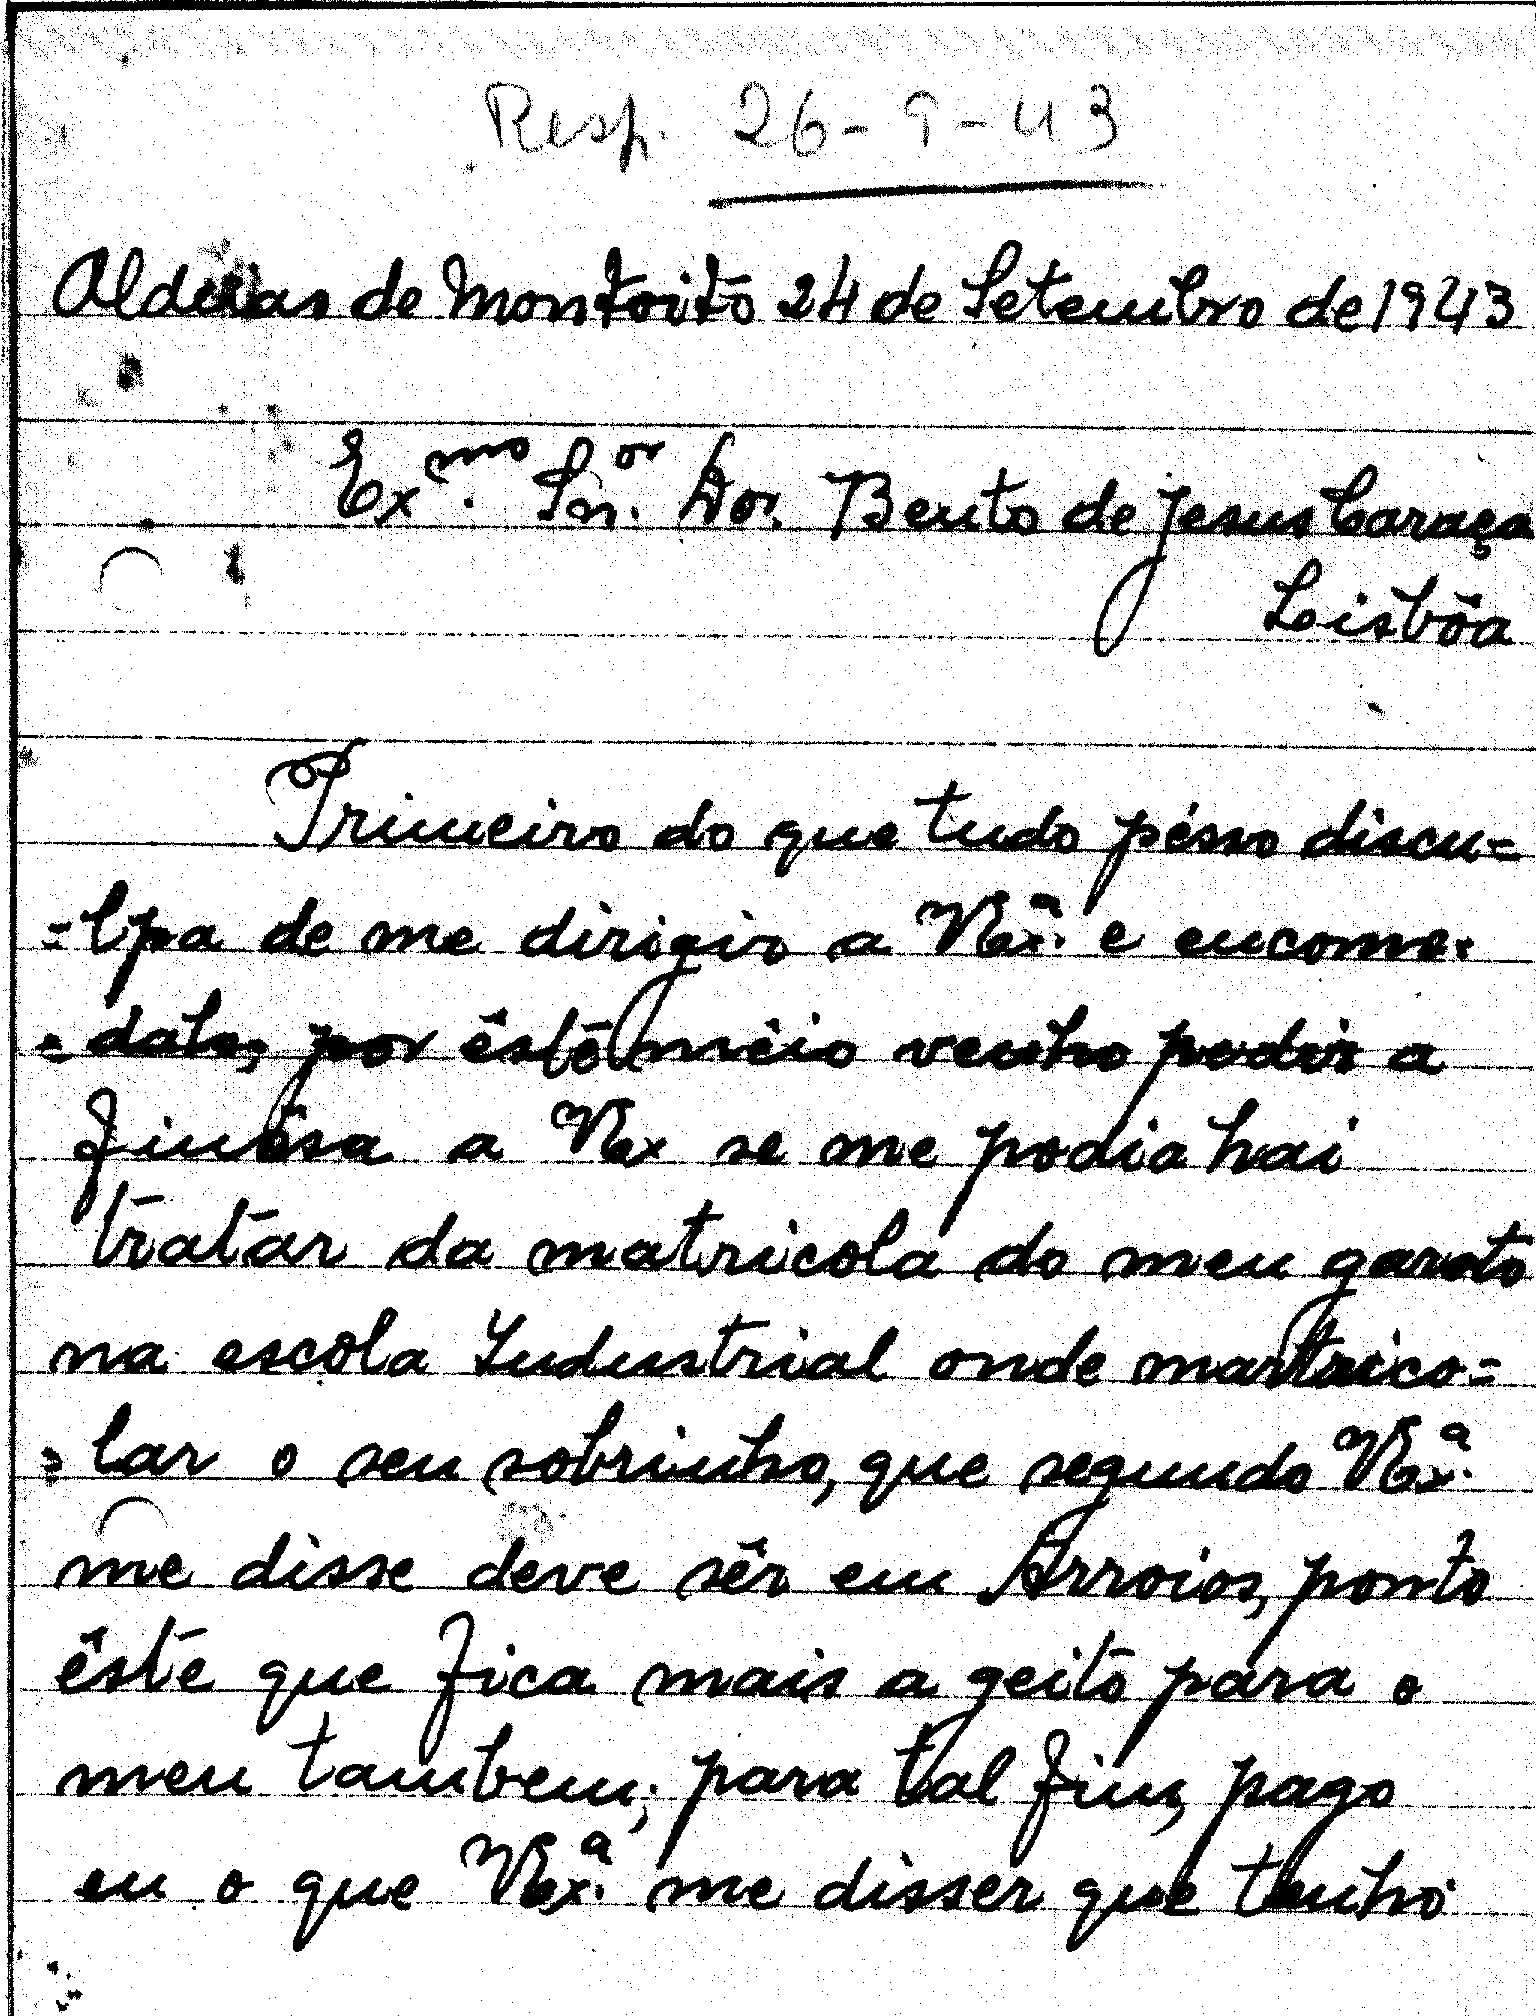 Resp. 26-9-43
Aldeias de Montoito 24 de Setembro de 1943
Ex.mo Sn.or Dor. Bento de Jesus Caraça
Lisbôa
Primeiro do que tudo pésso discu=
=lpa de me dirigir a V.Ex.ª e encomo=
=dalo, por êste mêio venho pedir a
finêsa a V.Ex se me podia hai
tratar da matricola do meu garoto
na escola Industrial onde martrico=
=lar o seu sobrinho, que segundo V.Ex.ª
me disse deve sêr em Arroios, ponto
êste que fica mais a geito para o
meu tambem; para tal fim, pago
eu o que V.Ex.ª me disser que tenho